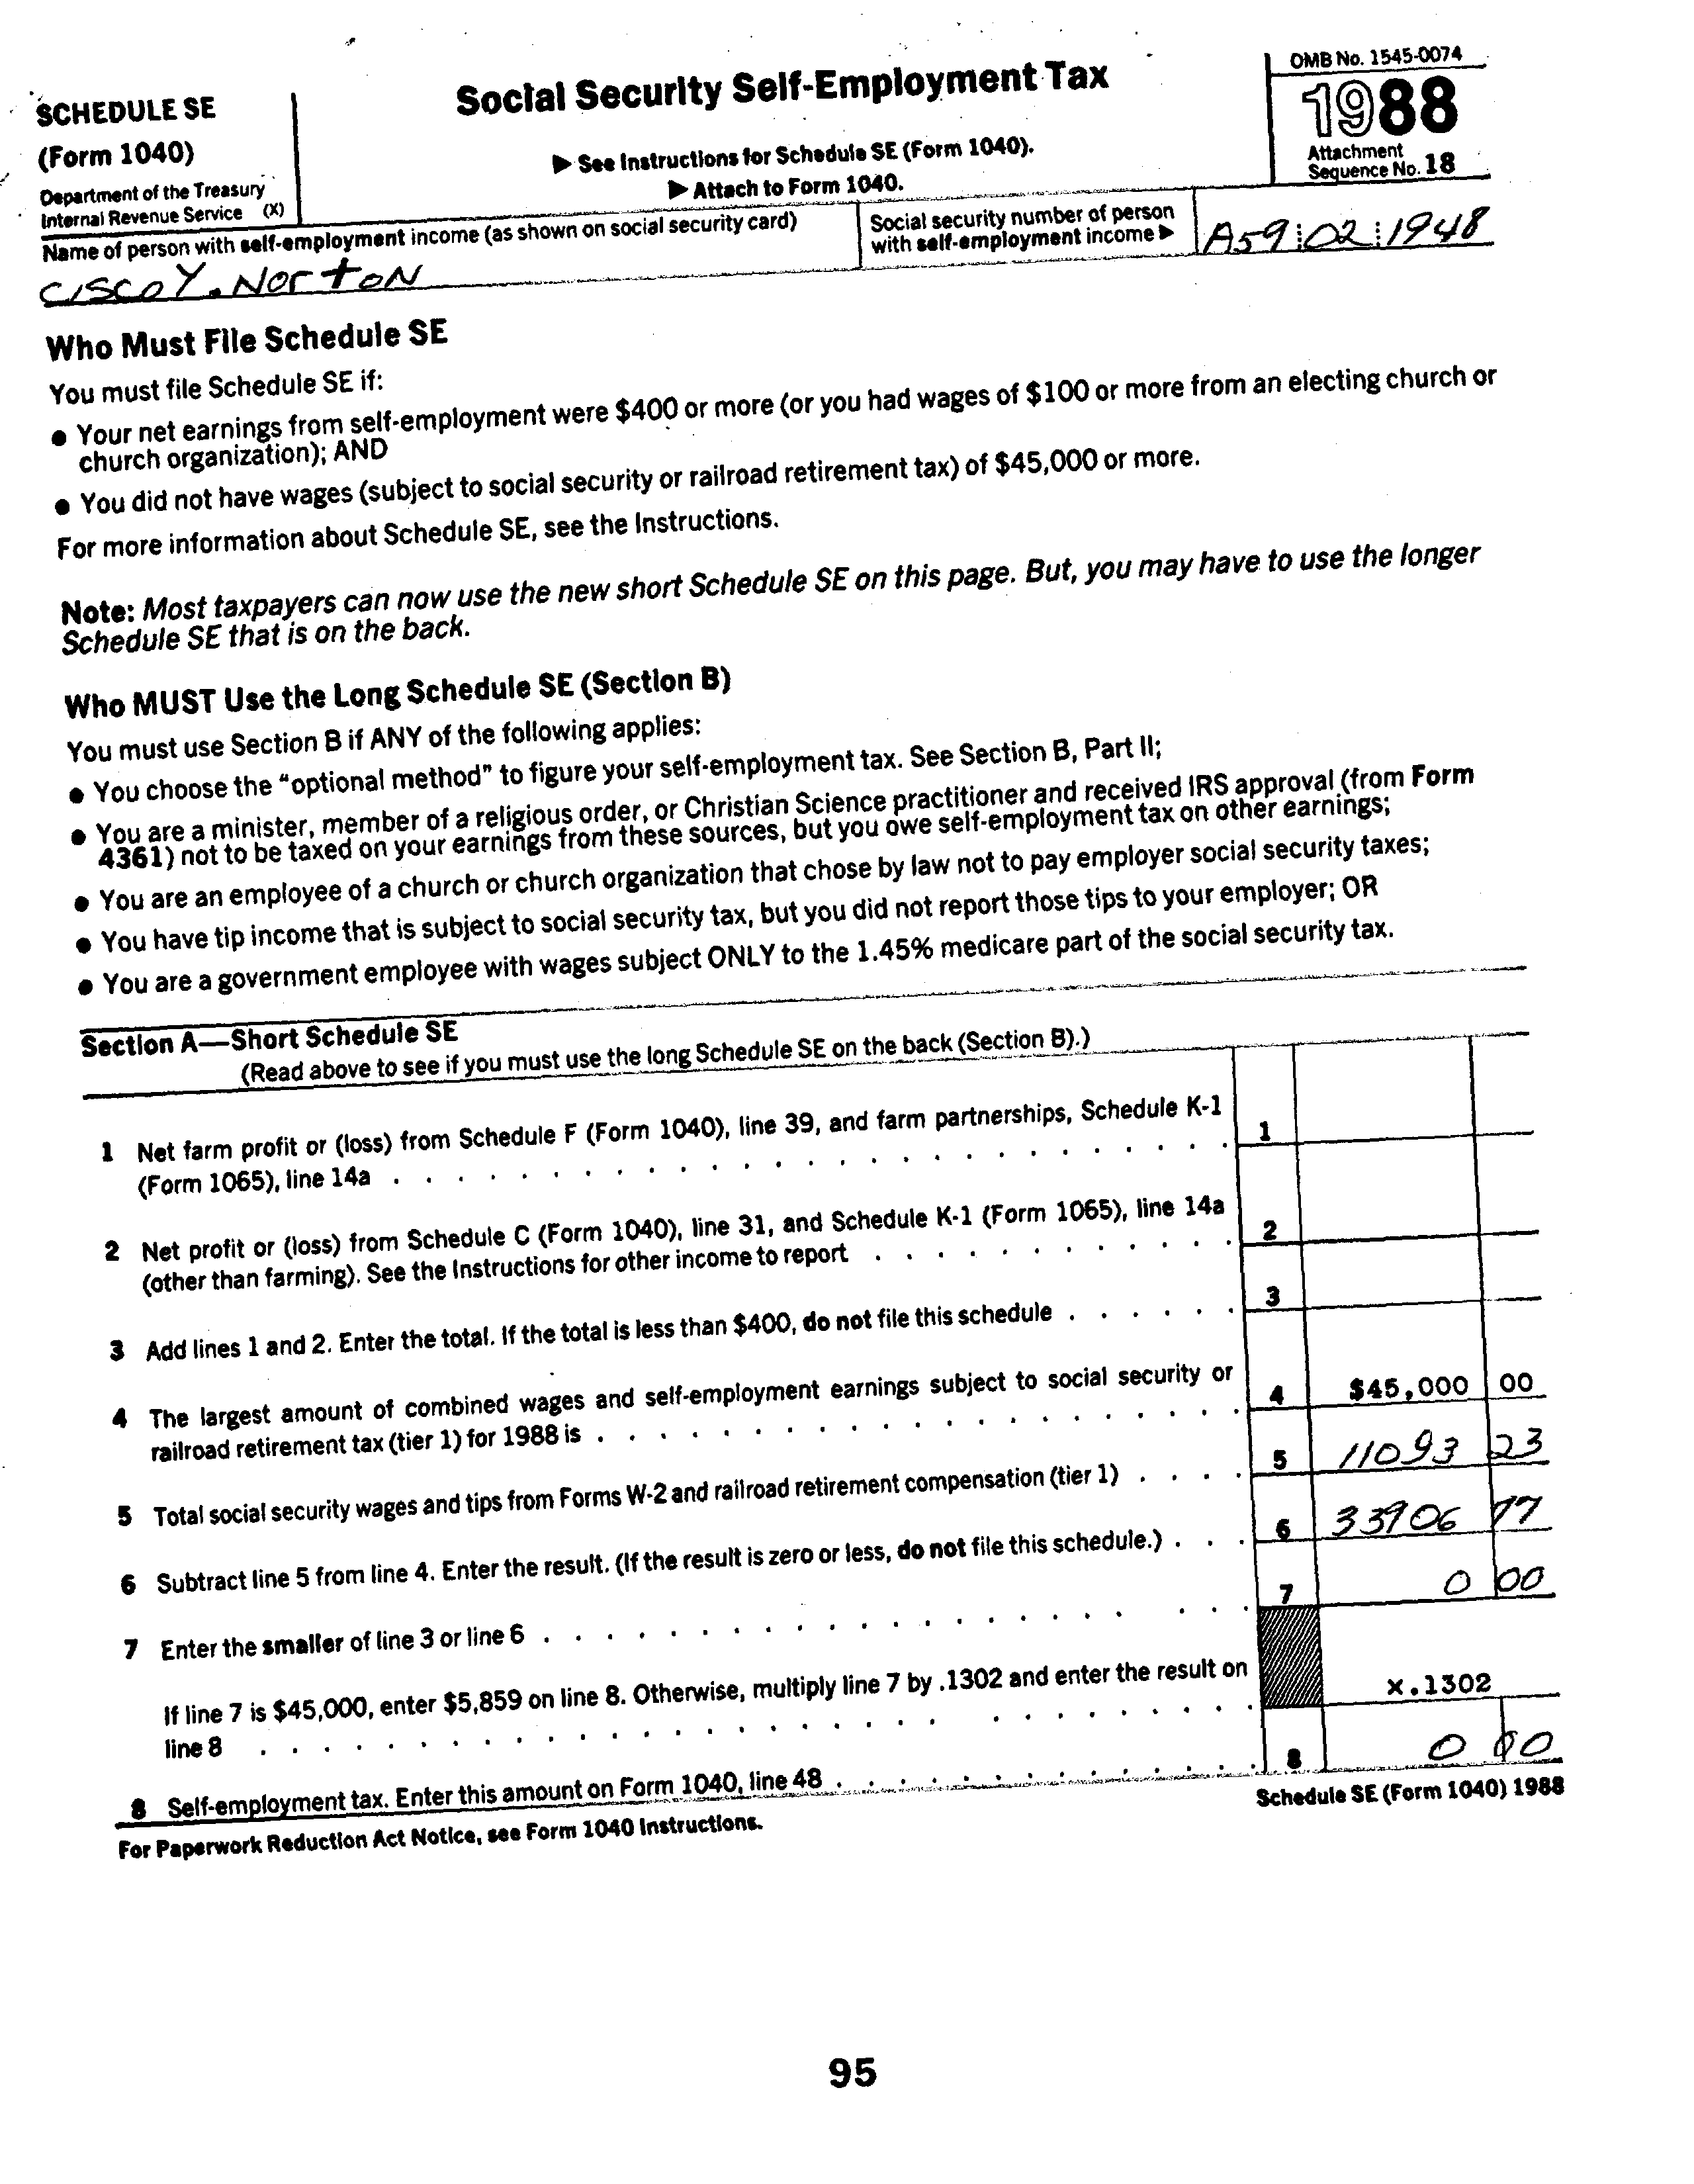 SCHEDULE SE
(Form 1040)
Department of the Treasury
Internal Revenue Service (X)
Social Security Self-Employment Tax
▶ See Instructions for Schedule SE (Form 1040).
▶ Attach to Form 1040.
OMB No. 1545-0074
1988
Attachment
Sequence No. 18
Name of person with self-employment income (as shown on social security card)
CISCO Y. NORTON
Social security number of person
with self-employment income ▶
A59 02 1948
Who Must File Schedule SE
You must file Schedule SE if:
● Your net earnings from self-employment were $400 or more (or you had wages of $100 or more from an electing church or
church organization); AND
● You did not have wages (subject to social security or railroad retirement tax) of $45,000 or more.
For more information about Schedule SE, see the Instructions.
Note: Most taxpayers can now use the new short Schedule SE on this page. But, you may have to use the longer
Schedule SE that is on the back.
Who MUST Use the Long Schedule SE (Section B)
You must use Section B if ANY of the following applies:
● You choose the "optional method" to figure your self-employment tax. See Section B, Part II;
● You are a minister, member of a religious order, or Christian Science practitioner and received IRS approval (from Form
4361) not to be taxed on your earnings from these sources, but you owe self-employment tax on other earnings;
● You are an employee of a church or church organization that chose by law not to pay employer social security taxes;
● You have tip income that is subject to social security tax, but you did not report those tips to your employer; OR
● You are a government employee with wages subject ONLY to the 1.45% medicare part of the social security tax.
Section A—Short Schedule SE
(Read above to see if you must use the long Schedule SE on the back (Section B).)
1 Net farm profit or (loss) from Schedule F (Form 1040), line 39, and farm partnerships, Schedule K-1
(Form 1065), line 14a . . . . . . . . . . . . . . . . . . . . . . . . . . . 1
2 Net profit or (loss) from Schedule C (Form 1040), line 31, and Schedule K-1 (Form 1065), line 14a
(other than farming). See the Instructions for other income to report . . . . . . . . . . . . 2
3 Add lines 1 and 2. Enter the total. If the total is less than $400, do not file this schedule . . . . . . 3
4 The largest amount of combined wages and self-employment earnings subject to social security or
railroad retirement tax (tier 1) for 1988 is . . . . . . . . . . . . . . . . . . . . . 4 $45,000 00
5 Total social security wages and tips from Forms W-2 and railroad retirement compensation (tier 1) . . . . 5 11093 23
6 Subtract line 5 from line 4. Enter the result. (If the result is zero or less, do not file this schedule.) . . . 6 33906 77
7 Enter the smaller of line 3 or line 6 . . . . . . . . . . . . . . . . . . . . . . 7 0 00
If line 7 is $45,000, enter $5,859 on line 8. Otherwise, multiply line 7 by .1302 and enter the result on
line 8 . . . . . . . . . . . . . . . . . . . . . . . . . . . . . . . x.1302
8 Self-employment tax. Enter this amount on Form 1040, line 48 . . . . . . . . . . . . . . 8 0 00
For Paperwork Reduction Act Notice, see Form 1040 Instructions.
Schedule SE (Form 1040) 1988
95